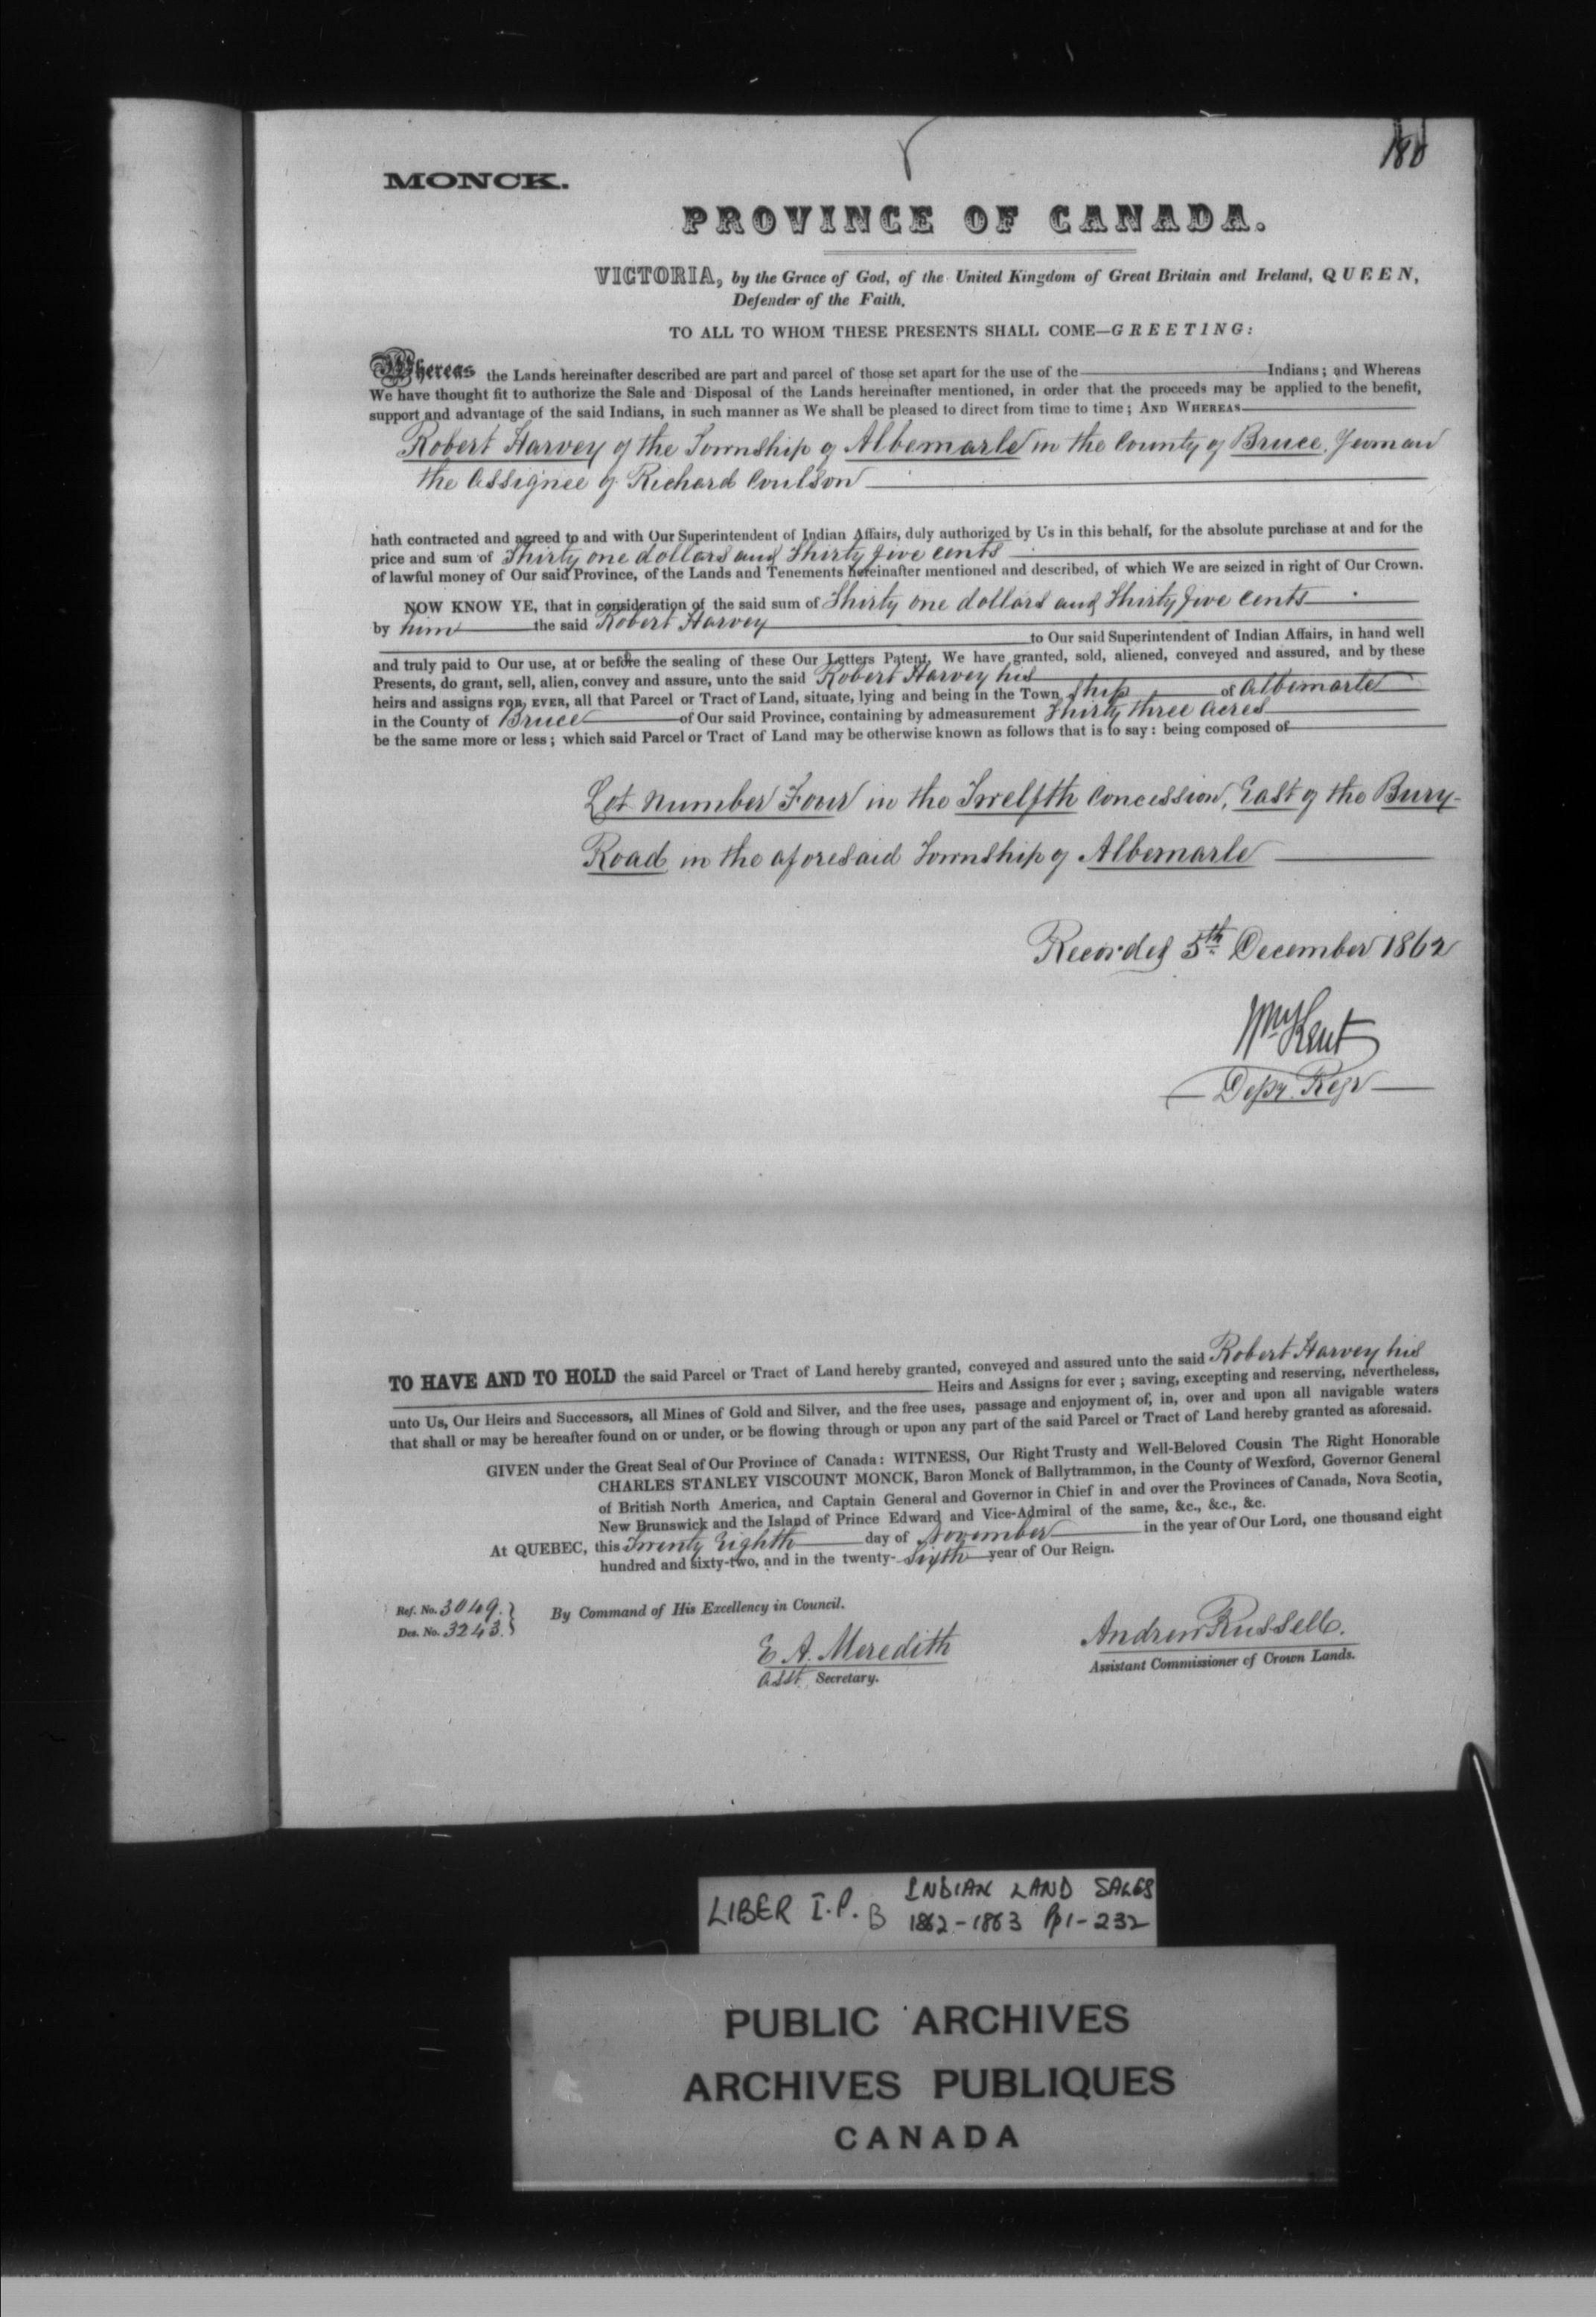 180
MONCK.
PROVINCE OF CANADA.
VICTORIA, by the Grace of God, of the United Kingdom of Great Britain and Ireland, QUEEN,
Defender of the Faith.
TO ALL TO WHOM THESE PRESENTS SHALL COME—GREETING:
Whereas the Lands hereinafter described are part and parcel of those set apart for the use of the Indians; and Whereas
We have thought fit to authorize the Sale and Disposal of the Lands hereinafter mentioned, in order that the proceeds may be applied to the benefit,
support and advantage of the said Indians, in such manner as We shall be pleased to direct from time to time; AND WHEREAS
Robert Harvey of the Township of Albemarle in the County of Bruce, Yeoman
the Assignee of Richard Coulson
hath contracted and agreed to and with Our Superintendent of Indian Affairs, duly authorized by Us in this behalf, for the absolute purchase at and for the
price and sum of Thirty one dollars and Thirty five cents
of lawful money of Our said Province, of the Lands and Tenements hereinafter mentioned and described, of which We are seized in right of Our Crown.
NOW KNOW YE, that in consideration of the said sum of Thirty one dollars and Thirty five cents
by him the said Robert Harvey
to Our said Superintendent of Indian Affairs, in hand well
and truly paid to Our use, at or before the sealing of these Our Letters Patent, We have granted, sold, aliened, conveyed and assured, and by these
Presents, do grant, sell, alien, convey and assure, unto the said Robert Harvey his
heirs and assigns FOR EVER, all that Parcel or Tract of Land, situate, lying and being in the Town ship of Albemarle
in the County of Bruce of Our said Province, containing by admeasurement Thirty three acres
be the same more or less; which said Parcel or Tract of Land may be otherwise known as follows that is to say: being composed of
Lot Number Four in the Twelfth Concession, East of the Bury
Road in the aforesaid Township of Albemarle
Recorded 5th December 1862
Wm Kent
Depy. Regr
TO HAVE AND TO HOLD the said Parcel or Tract of Land hereby granted, conveyed and assured unto the said Robert Harvey his
Heirs and Assigns for ever; saving, excepting and reserving, nevertheless,
unto Us, Our Heirs and Successors, all Mines of Gold and Silver, and the free uses, passage and enjoyment of, in, over and upon all navigable waters
that shall or may be hereafter found on or under, or be flowing through or upon any part of the said Parcel or Tract of Land hereby granted as aforesaid.
GIVEN under the Great Seal of Our Province of Canada: WITNESS, Our Right Trusty and Well-Beloved Cousin The Right Honorable
CHARLES STANLEY VISCOUNT MONCK, Baron Monck of Ballytrammon, in the County of Wexford, Governor General
of British North America, and Captain General and Governor in Chief in and over the Provinces of Canada, Nova Scotia,
New Brunswick and the Island of Prince Edward and Vice-Admiral of the same, &c., &c., &c.
At QUEBEC, this Twenty Eighth day of November in the year of Our Lord, one thousand eight
hundred and sixty-two, and in the twenty- Sixth year of Our Reign.
Ref. No. 3049.
Des. No. 3243.
By Command of His Excellency in Council.
E A. Meredith
Asst. Secretary.
Andrew Russell.
Assistant Commissioner of Crown Lands.
LIBER I.P. B INDIAN LAND SALES
1862-1863 Pp 1-232
PUBLIC ARCHIVES
ARCHIVES PUBLIQUES
CANADA